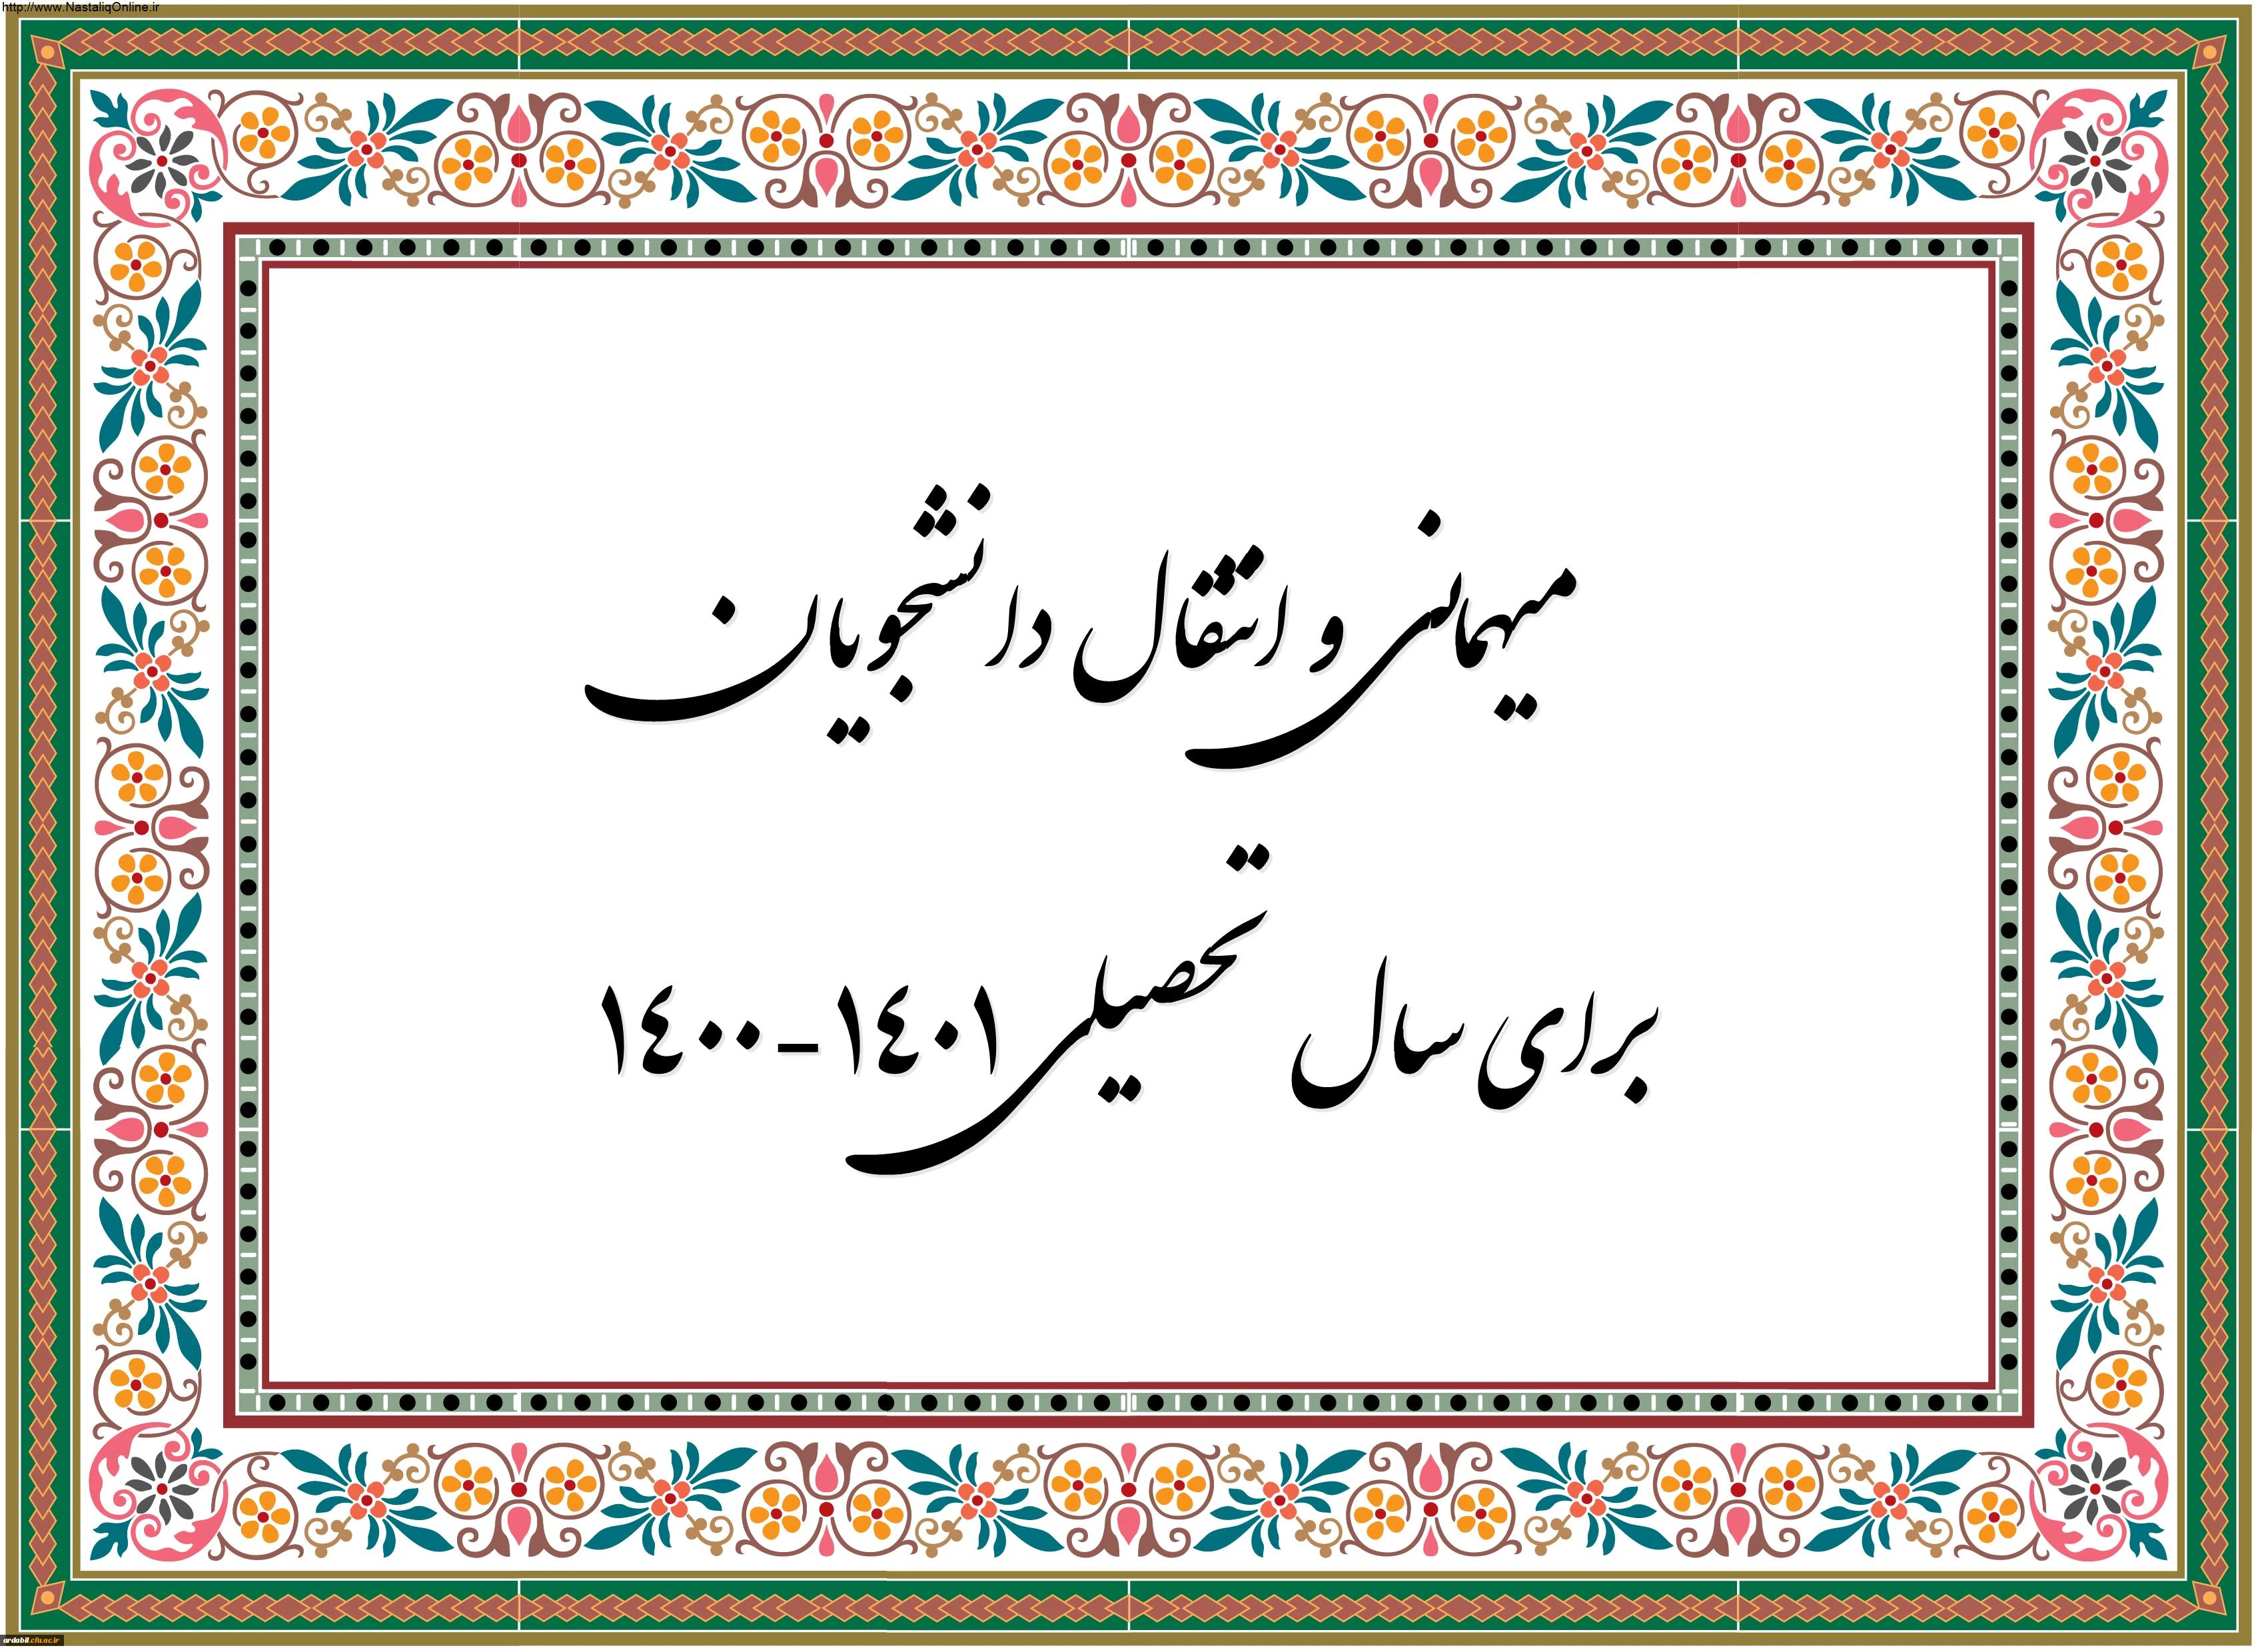 http://www.NastaliqOnline.ir
میهمانی و انتقال دانشجویان
برای سال تحصیلی ١٤٠٠-١٤٠١
ardabil.cfu.ac.ir